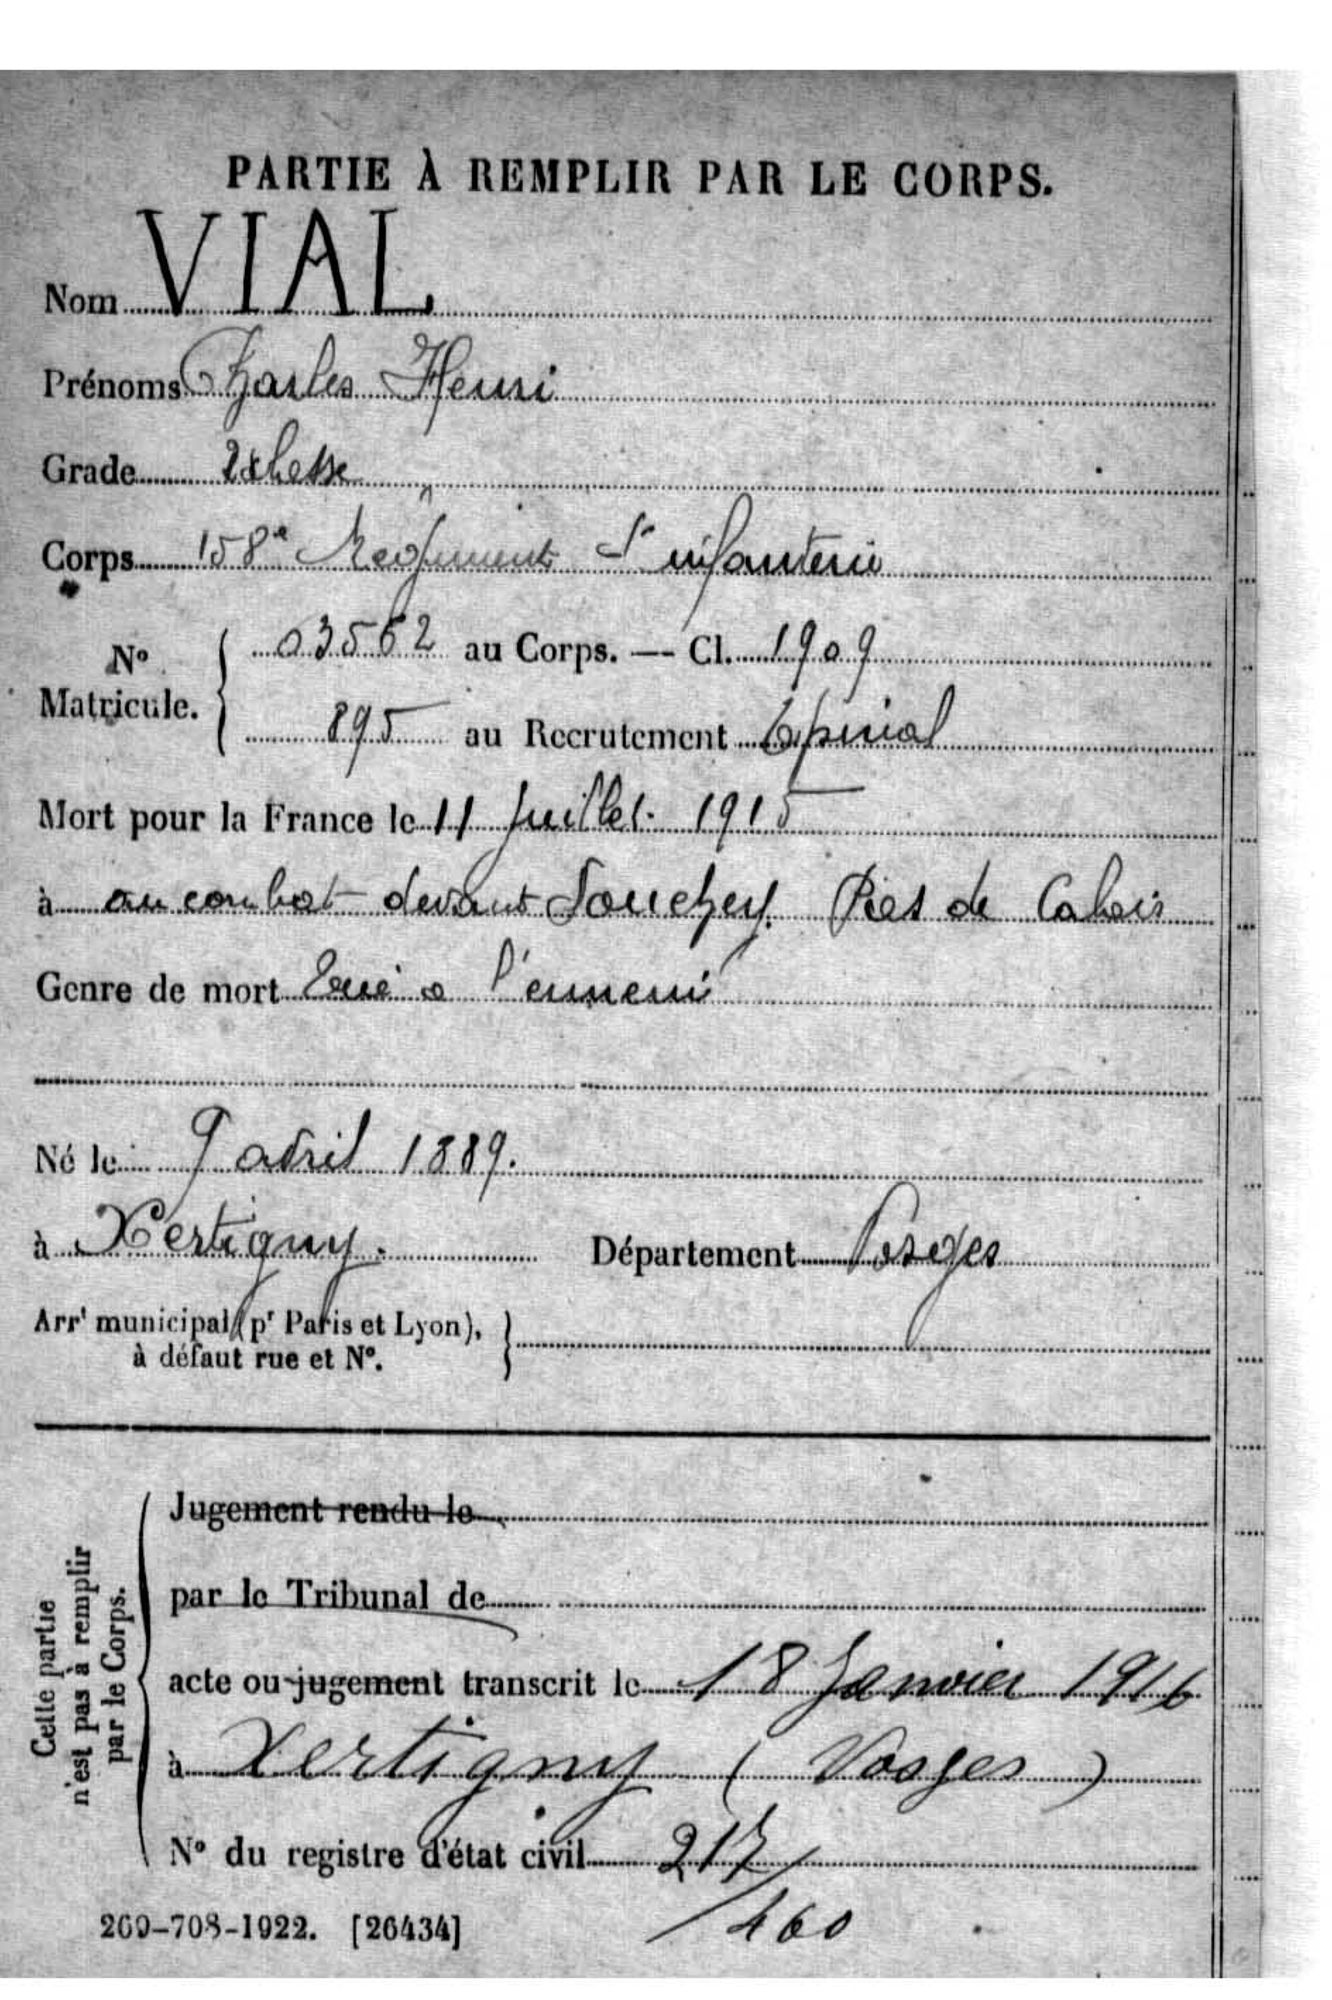 PARTIE À REMPLIR PAR LE CORPS.
Nom VIAL
Prénoms Charles Henri
Grade 2e classe
Corps 158e Régiment d'infanterie
No Matricule. 03562 au Corps. — Cl. 1909
895 au Recrutement Epinal
Mort pour la France le 11 Juillet 1915
à au combat devant Souchez Pas de Calais
Genre de mort Tué à l'ennemi
Né le 9 avril 1889.
à Xertigny. Département Vosges
Arrt municipal (pr Paris et Lyon),
à défaut rue et No.
Cette partie
n'est pas à remplir
par le Corps.
Jugement rendu le
par le Tribunal de
acte ou jugement transcrit le 18 Janvier 1916
à Xertigny (Vosges)
No du registre d'état civil 217/
/460
269-708-1922. [26434]